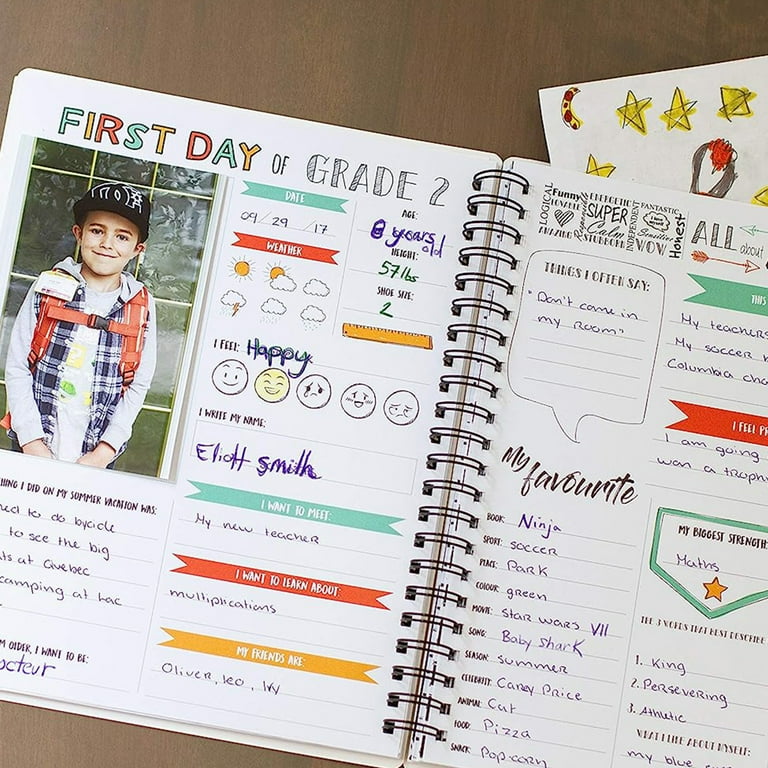 FIRST DAY OF GRADE 2
DATE
09/29/17
WEATHER
AGE:
8 years old
HEIGHT:
57 lbs
SHOE SIZE:
2
I FEEL: Happy
I WRITE MY NAME:
Eliott smith
HING I DID ON MY SUMMER VACATION WAS:
to do bycicle
to see the big
ts at Quebec
camping at Lac
M OLDER, I WANT TO BE:
octeur
I WANT TO MEET:
My new teacher
I WANT TO LEARN ABOUT:
multiplications
MY FRIENDS ARE:
Oliver, Leo, Ivy
LOGICAL
Funny
ENERGETIC
LOVABLE
SUPER
FANTASTIC
Calm
Sensitive
AMAZING
STUBBORN
INDEPENDENT
WOW
Honest
ALL about
THINGS I OFTEN SAY:
"Don't come in
my room"
THIS
My teachers
My soccer
Columbia
I FEEL PR
I am going
won a troph
My favourite
BOOK: Ninja
SPORT: soccer
PLACE: Park
COLOUR: green
MOVIE: Star wars VII
SONG: Baby shark
SEASON: summer
CELEBRITY: Carey Price
ANIMAL: Cat
FOOD: Pizza
SNACK: Popcorn
MY BIGGEST STRENGTH:
Maths
THE 3 WORDS THAT BEST DESCRIBE
1. King
2. Persevering
3. Athletic
WHAT I LIKE ABOUT MYSELF:
my blue